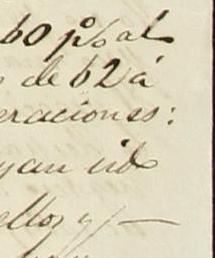 60 p% al
de 62 á
eraciones:
yan ido
ellos y —